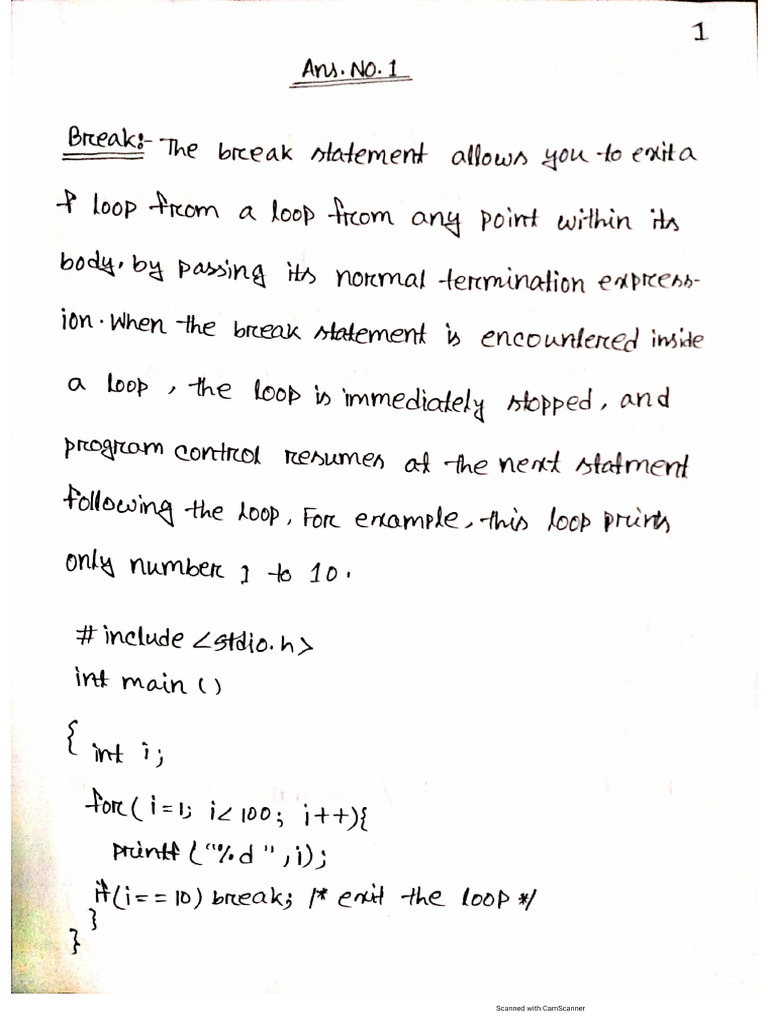 1
Ans. No. 1
Break:- The break statement allows you to exit a
f loop from a loop from any point within its
body, by passing its normal termination express-
ion. When the break statement is encountered inside
a loop, the loop is immediately stopped, and
program control resumes at the next statment
following the loop, For example, this loop prints
only number 1 to 10.
# include <stdio.h>
int main ()
{ int i;
for( i=1; i< 100; i++){
printf ("%d ", i);
if(i == 10) break; /* exit the loop */
}
}
Scanned with CamScanner